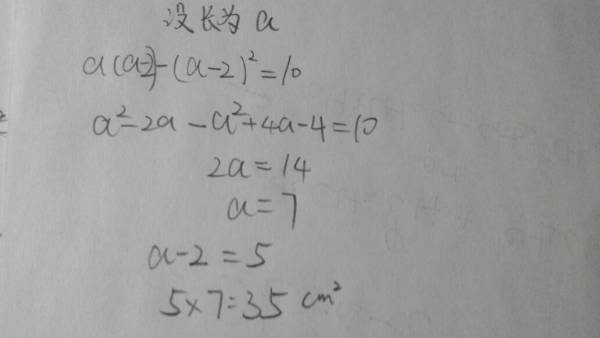 设长为 a
a(a-2)-(a-2)²=10
a²-2a-a²+4a-4=10
2a=14
a=7
a-2=5
5×7=35 cm²